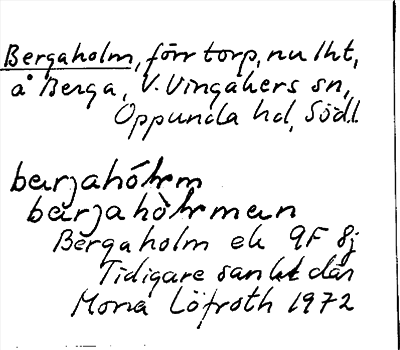 Bergaholm, förr torp, nu lht,
å Berga, V. Vingåkers sn,
Oppunda hd, Södl.
barjahóhrm
barjahòhrman
Bergaholm ek 9F 8j
Tidigare sankt där
Mona Löfroth 1972